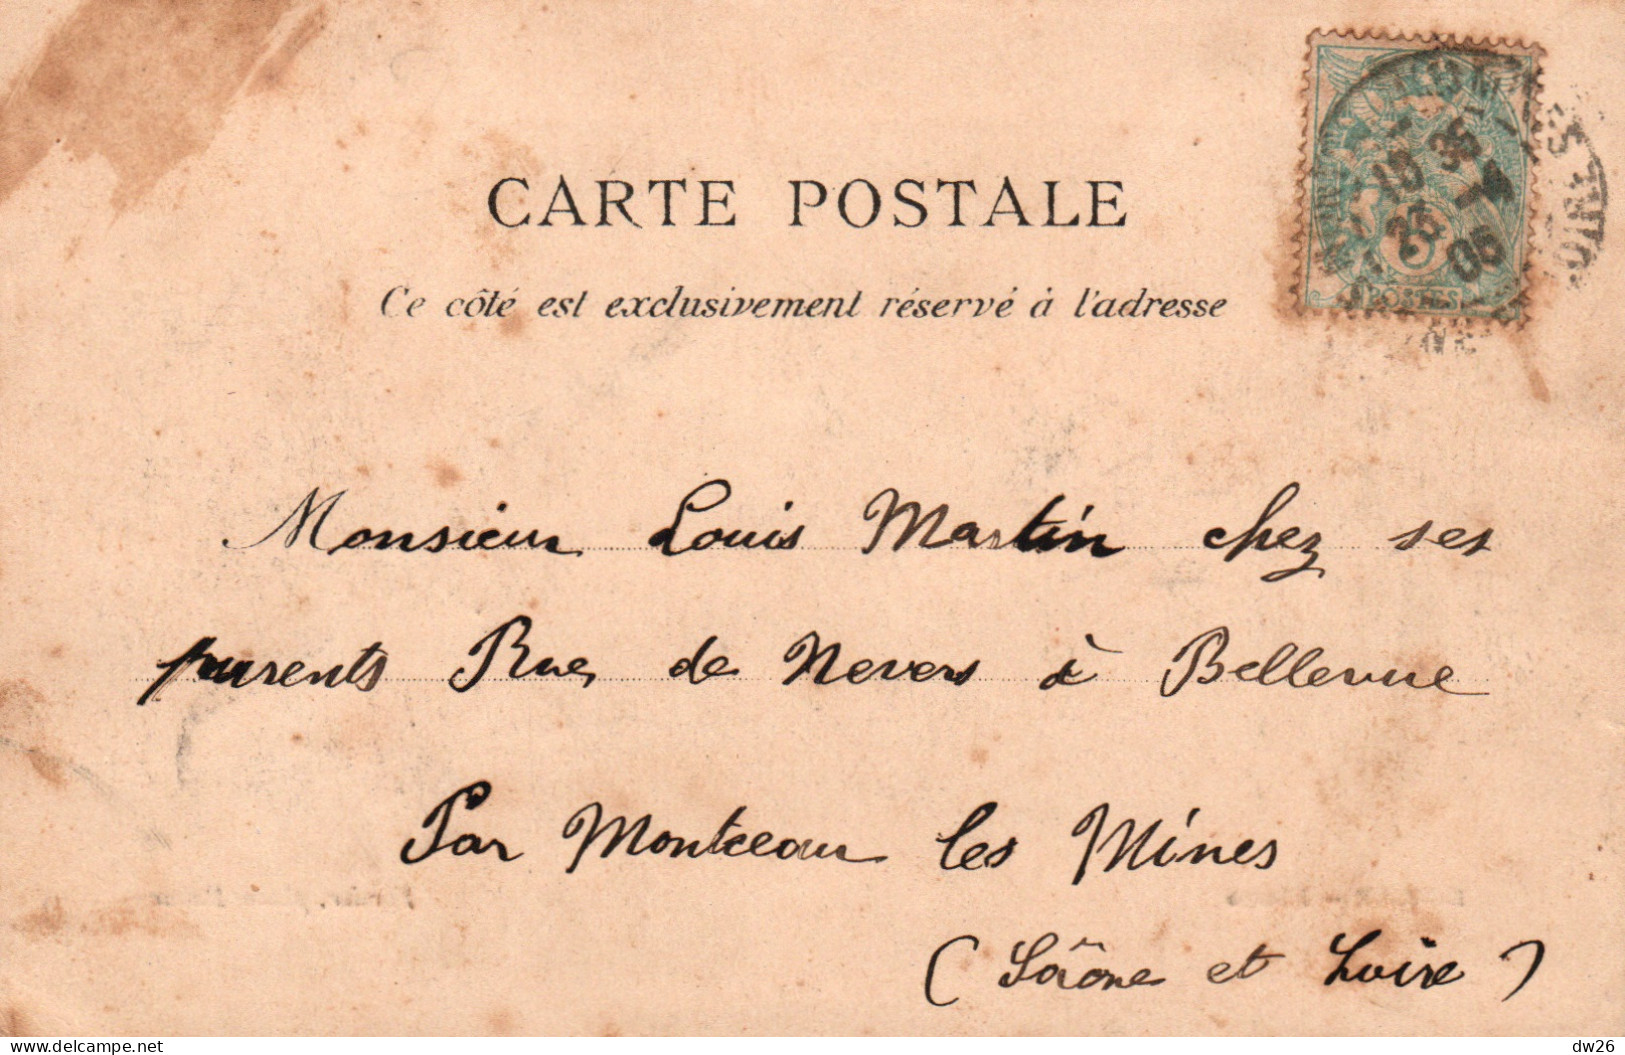 CARTE POSTALE
Ce côté est exclusivement réservé à l'adresse
10 35
25 - 1
06
5
POSTES
Monsieur Louis Martin chez ses
parents Rue de Nevers à Bellevue
Par Montceau les Mines
(Saône et Loire)
www.delcampe.net
dw26